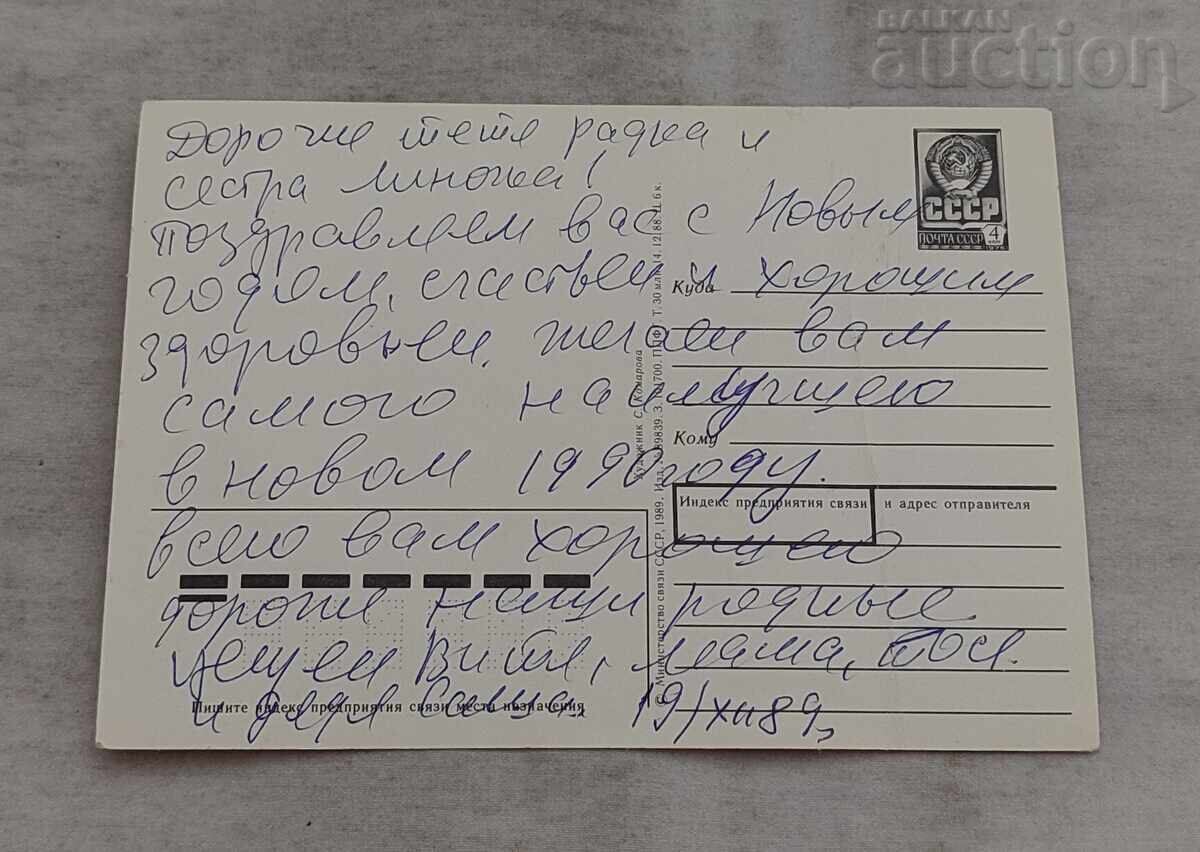 BALKAN
auction
Дорогие тётя радка и
сестра
поздравляем вас с Новым
годом, счастьем и хорошим
здоровьем. желаем вам
самого наилучшего
в новом 1990 году.
всего вам хорошего
дорогие наши родные
целуем Витя, мама, Тося.
и дядя Саша. 19/XII 89
СССР
ПОЧТА СССР 4 коп
1976
Куда
Кому
Индекс предприятия связи и адрес отправителя
Пишите индекс предприятия связи места назначения
Художник С. Комарова
© Министерство связи СССР, 1989. Изд. 14.12.88. Ц. 6 к.